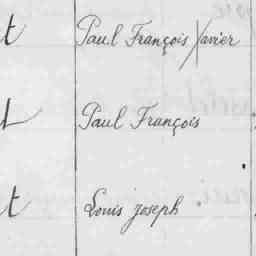 t Paul François Xavier
t Paul François
t Louis joseph